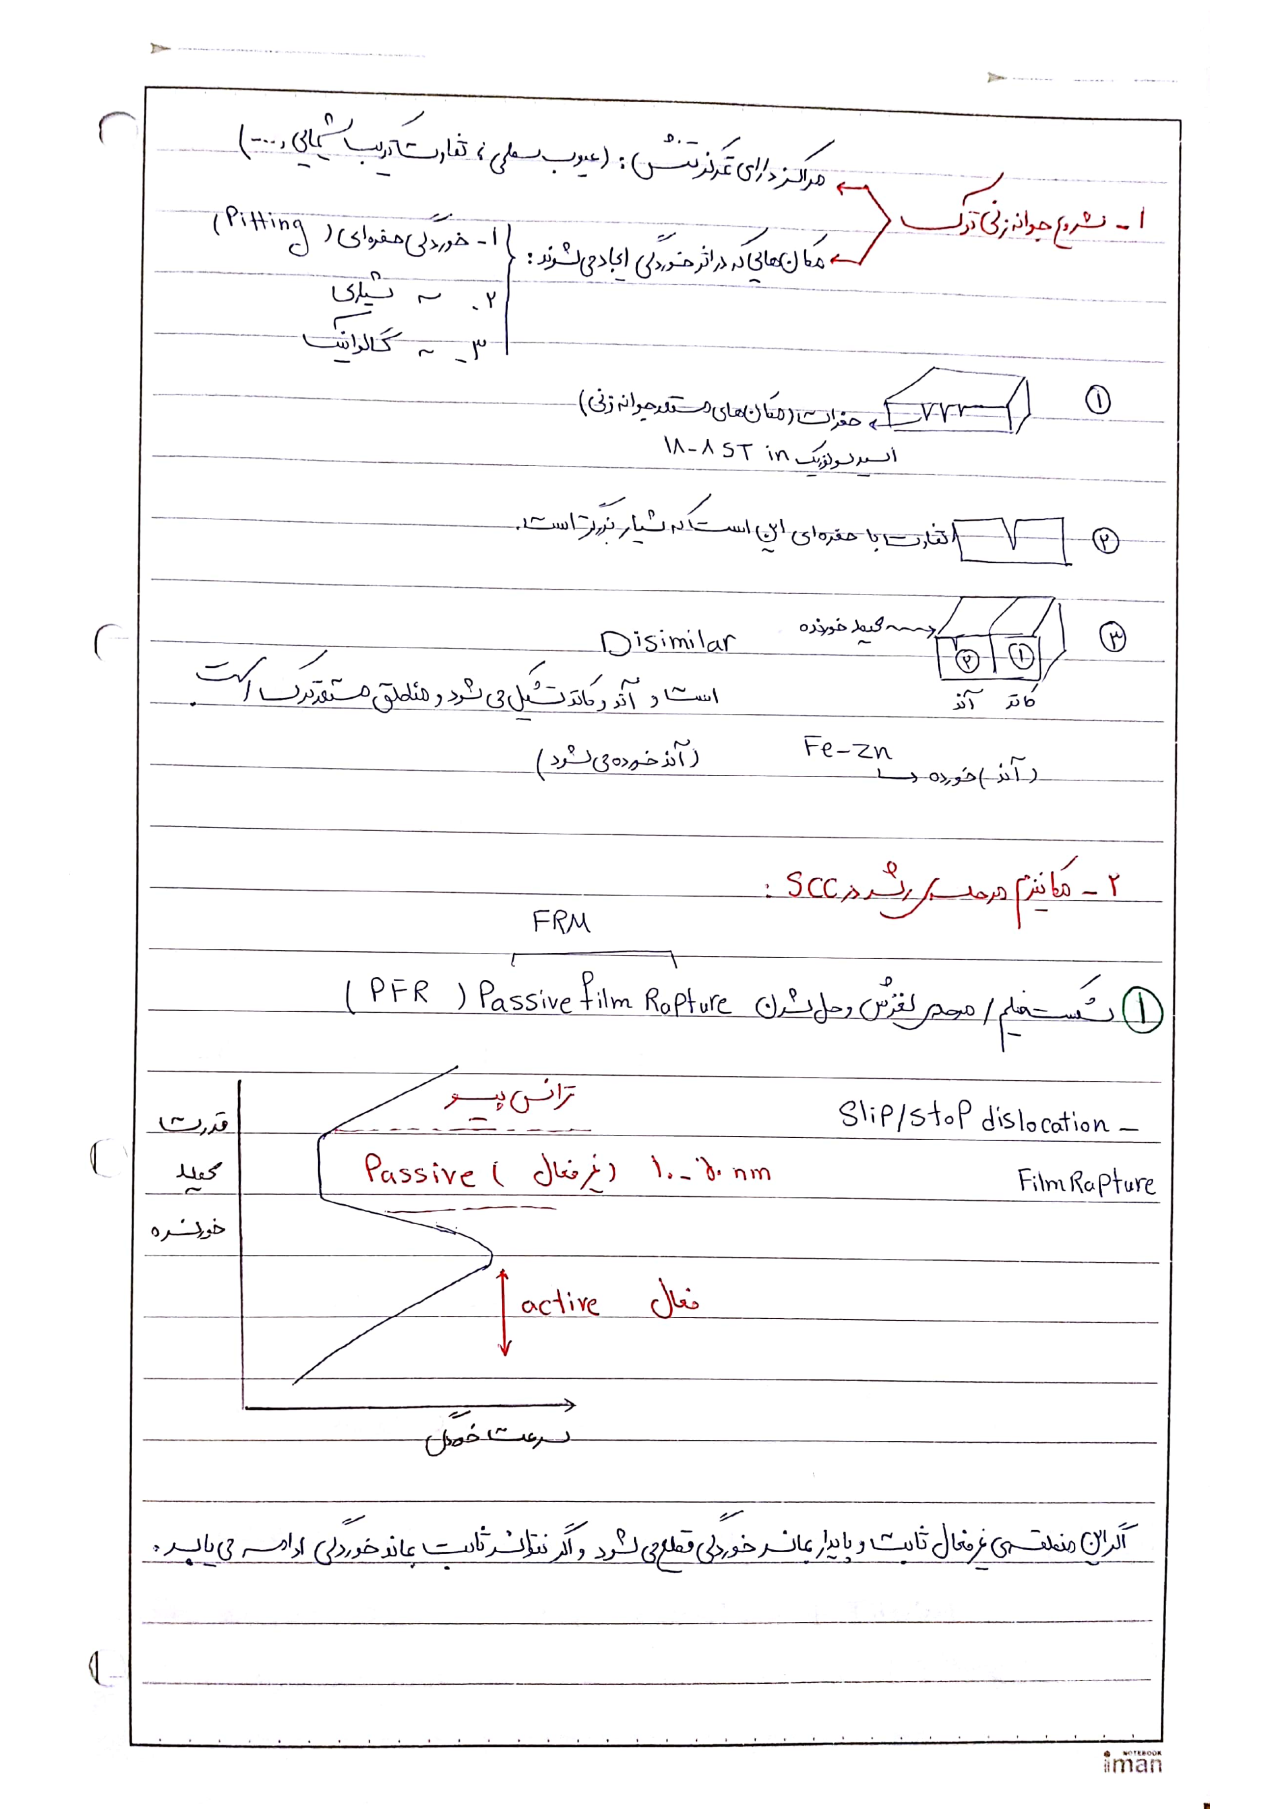 ۱- شروع جوانه زنی ترک
مراکز دارای تمرکز تنش: (عیوب سطحی، تفاوت ترکیب شیمیایی، ...)
مکان‌هایی که در اثر خوردگی ایجاد می‌شوند:
۱- خوردگی حفره‌ای (Pitting)
۲. ~ شیاری
۳- ~ گالوانیک
۱
حفرات (مکان‌های مستعد جوانه زنی)
اسید سولفوریک in ۱۸-۸ ST
۲
تفاوت با حفره‌ای این است که شیار بزرگتر است.
۳
محیط خورنده
۲ ۱
آند کاتد
Disimilar
است و آند و کاتد تشکیل می‌شود و مناطق مستعد ترک است.
Fe-Zn
خورده (آند)
(آند خورده می‌شود)
۲- مکانیزم مرحله‌ی رشد در SCC:
FRM
۱ شکست فیلم / مدل لغزش و حل شدن Passive film Rapture (PFR)
Slip/stop dislocation -
Film Rapture
قدرت
محیط
خورنده
ترانس پسیو
Passive (غیر فعال) ۱۰-۵۰ nm
active فعال
سرعت خوردگی
اگر این منطقه‌ی غیر فعال ثابت و پایدار بماند خوردگی قطع می‌شود و اگر نتواند ثابت بماند خوردگی ادامه می‌یابد.
NOTEBOOK
iman